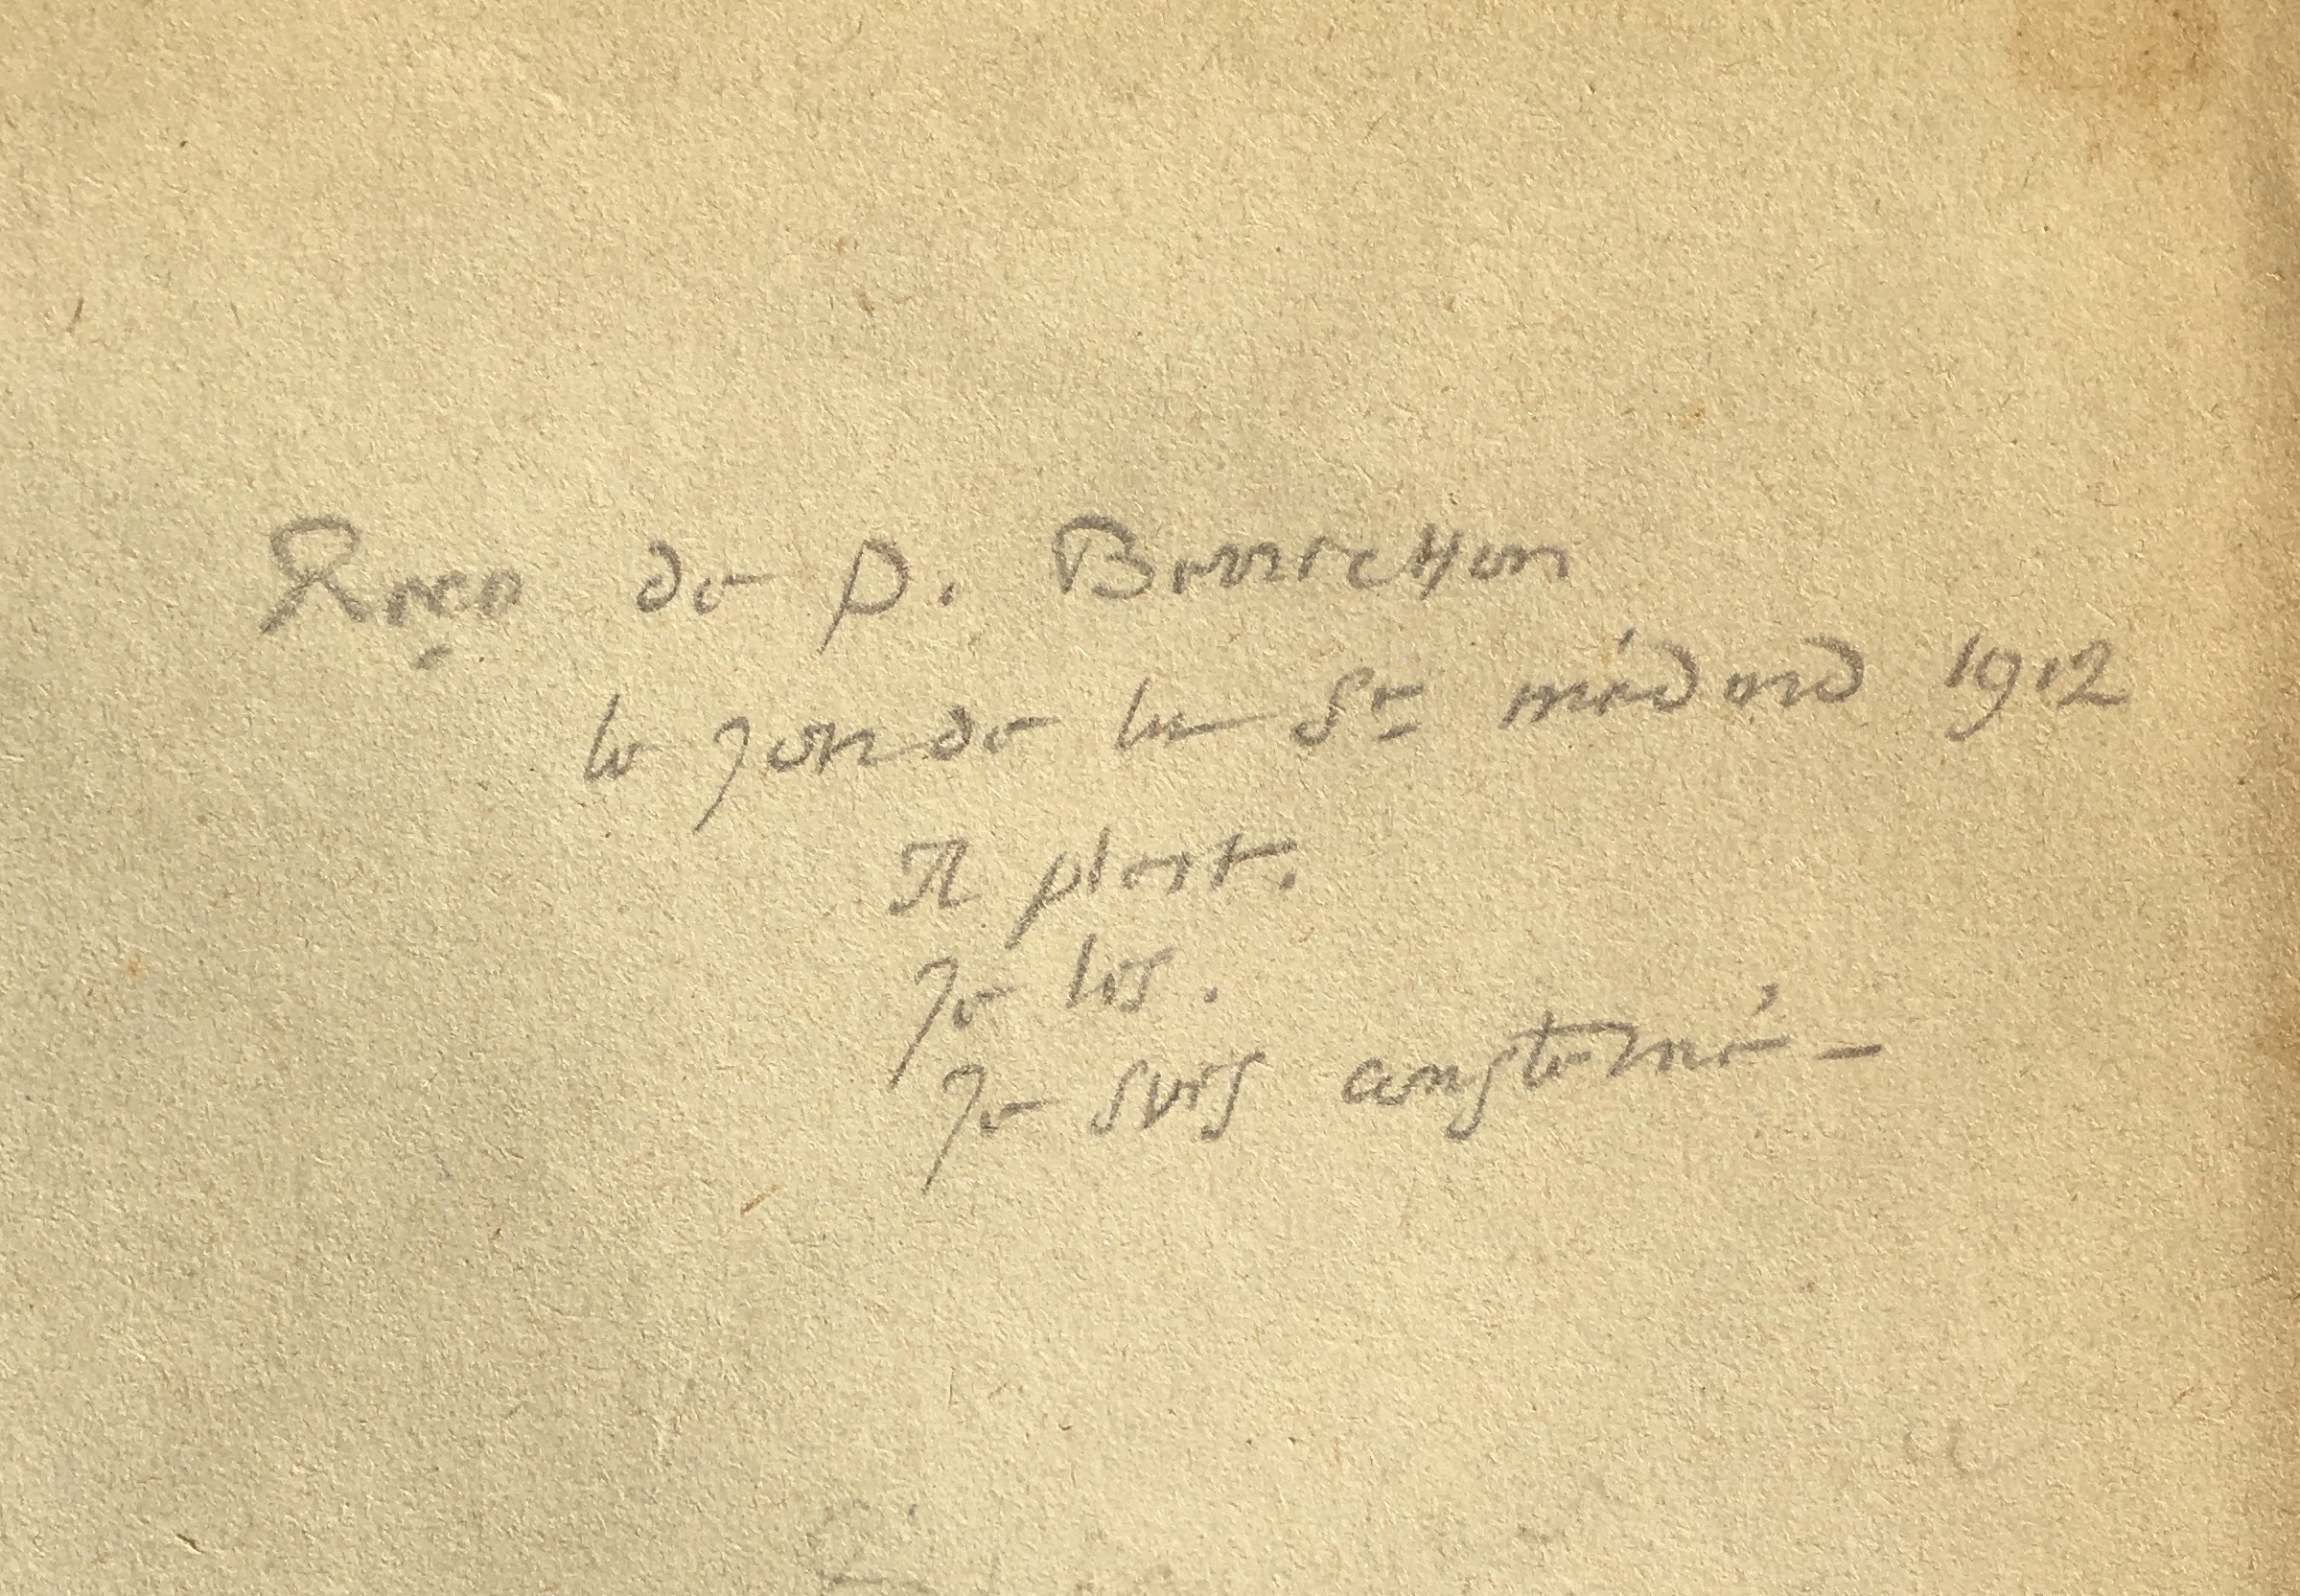 Reçu de P.
le jour de la St médard 1912
Il pleut.
Je lis.
Je suis consterné –